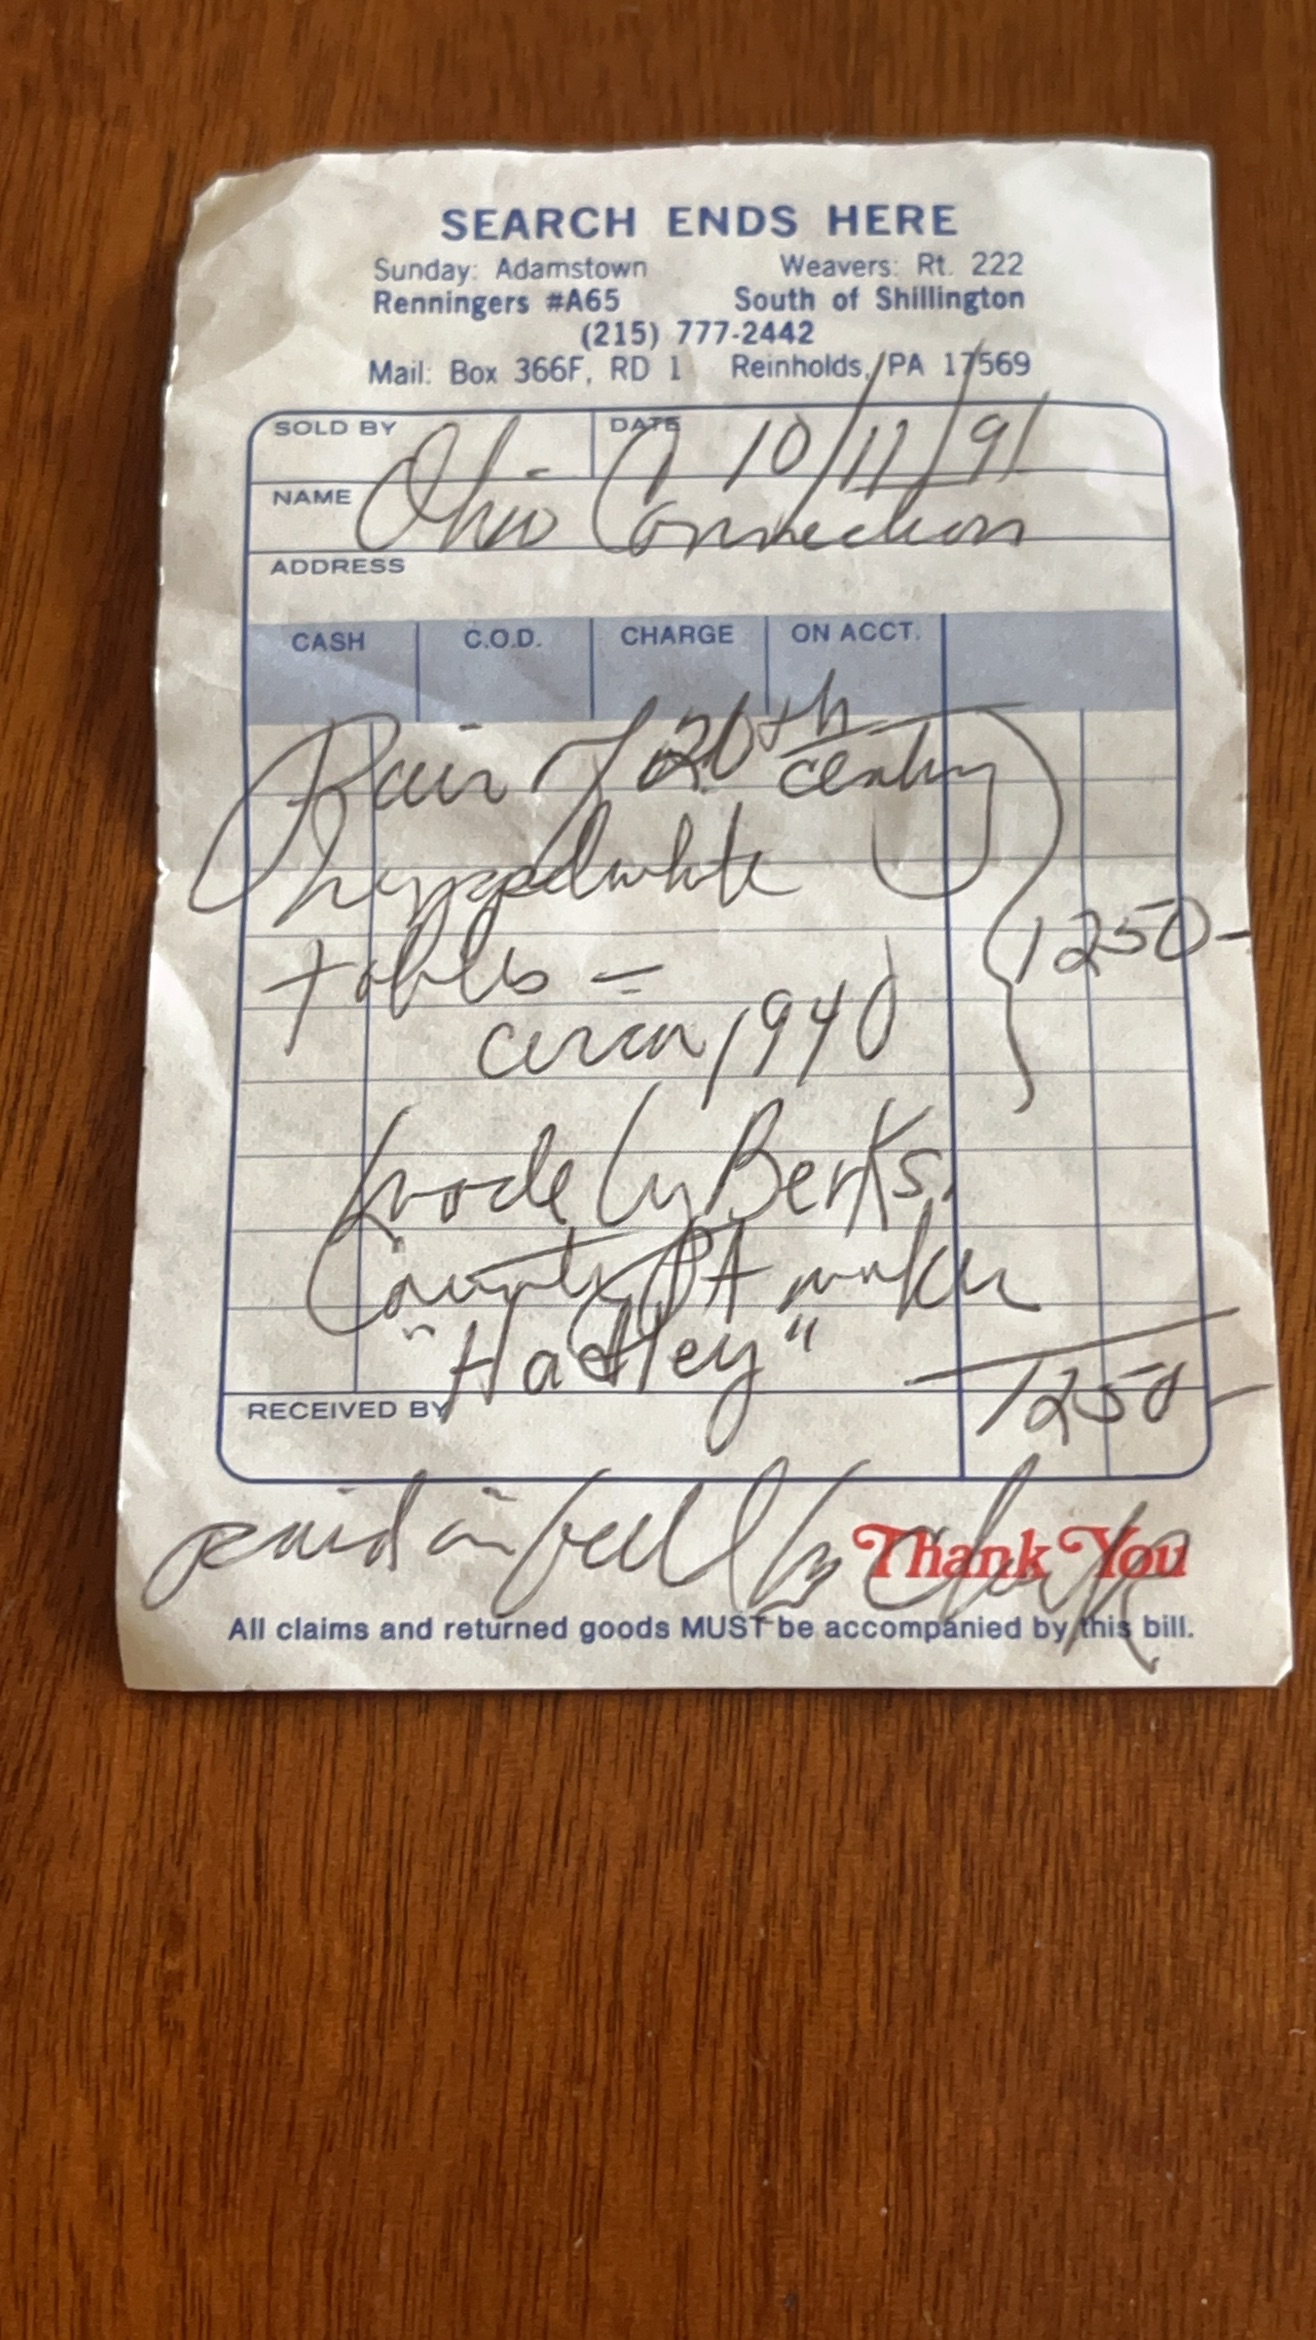 SEARCH ENDS HERE
Sunday: Adamstown Weavers: Rt. 222
Renningers #A65 South of Shillington
(215) 777-2442
Mail: Box 366F, RD 1 Reinholds, PA 17569
SOLD BY DATE 10/11/91
NAME Ohio Connection
ADDRESS
CASH C.O.D. CHARGE ON ACCT.
Pair of 20th century
heppelwhite
tables -
circa 1940
1250-
made by Berks
County PA maker
"Hadley"
RECEIVED BY 1250-
paid in full by check
Thank You
All claims and returned goods MUST be accompanied by this bill.